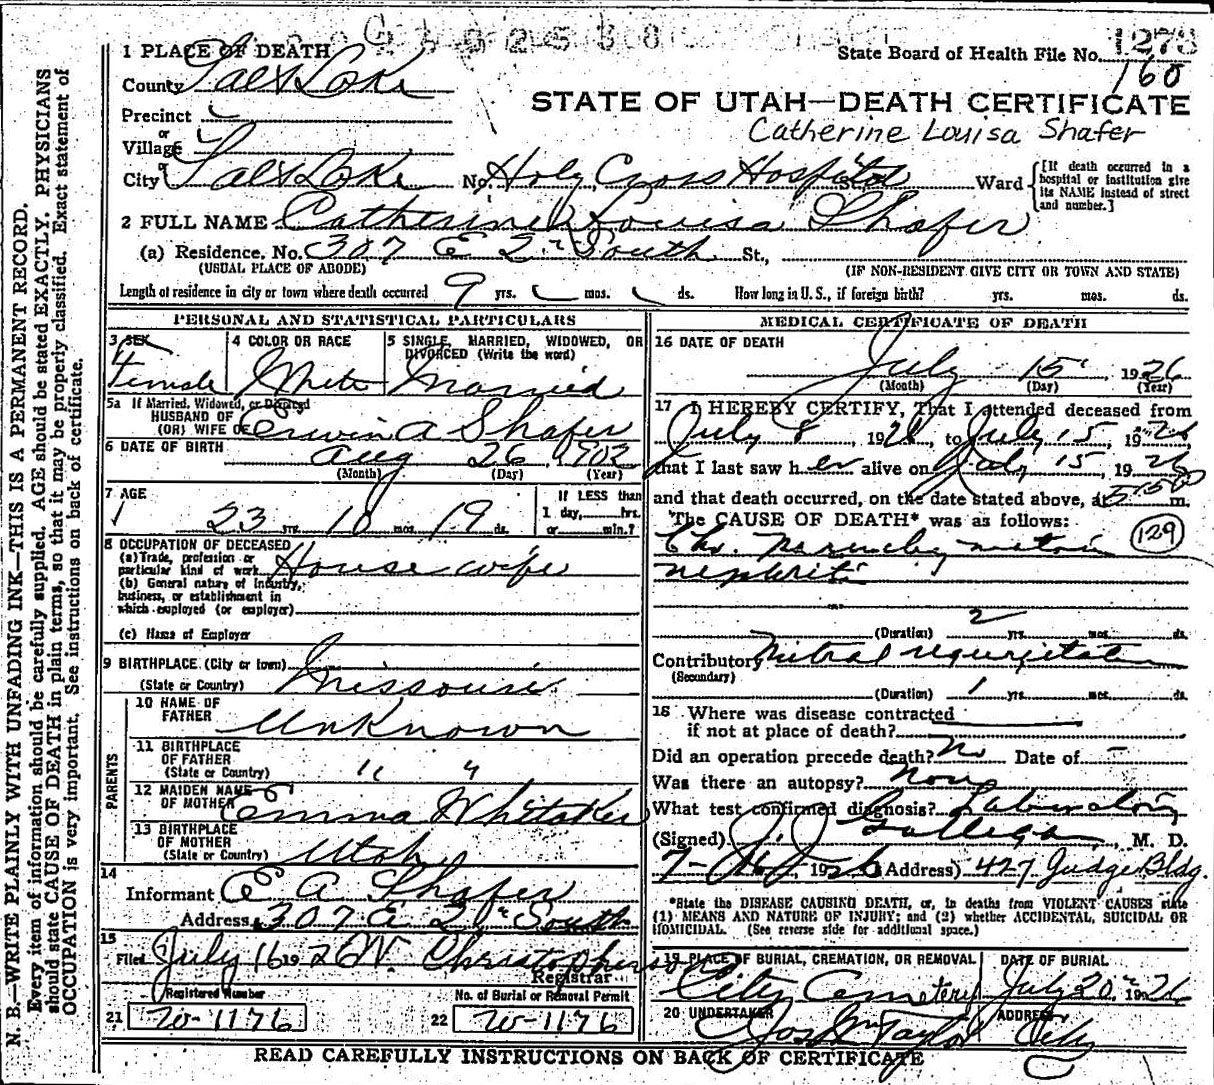 1 PLACE OF DEATH
State Board of Health File No. 1273
160
County Salt Lake
STATE OF UTAH—DEATH CERTIFICATE
Precinct
Catherine Louisa Shafer
or
Village
or
City Salt Lake No. Holy Cross Hospital St. Ward
[If death occurred in a hospital or institution give its NAME instead of street and number.]
2 FULL NAME Catherine Louisa Shafer
(a) Residence. No. 307 E 2nd South St.,
(USUAL PLACE OF ABODE) (IF NON-RESIDENT GIVE CITY OR TOWN AND STATE)
Length of residence in city or town where death occurred 9 yrs. mos. ds. How long in U. S., if foreign birth? yrs. mos. ds.
PERSONAL AND STATISTICAL PARTICULARS
3 SEX 4 COLOR OR RACE 5 SINGLE, MARRIED, WIDOWED, OR
DIVORCED (Write the word)
Female White Married
5a If Married, Widowed, or Divorced
HUSBAND OF
(OR) WIFE OF Erwin A Shafer
6 DATE OF BIRTH Aug 26, 1902
(Month) (Day) (Year)
7 AGE If LESS than
1 day, hrs.
23 yrs. 10 mos. 19 ds. or min.?
8 OCCUPATION OF DECEASED
(a) Trade, profession or
particular kind of work House wife
(b) General nature of Industry,
business, or establishment in
which employed (or employer)
(c) Name of Employer
9 BIRTHPLACE (City or town)
(State or Country) Missouri
PARENTS
10 NAME OF
FATHER Unknown
11 BIRTHPLACE
OF FATHER
(State or Country) " "
12 MAIDEN NAME
OF MOTHER Emma Whitaker
13 BIRTHPLACE
OF MOTHER
(State or Country) Utah
14
Informant E A Shafer
Address 307 E 2nd South
15
Filed July 16 1926 W. Christopherson
Registrar
Registered Number No. of Burial or Removal Permit
21 W-1176 22 W-1176
MEDICAL CERTIFICATE OF DEATH
16 DATE OF DEATH
July 15, 1926
(Month) (Day) (Year)
17 I HEREBY CERTIFY, That I attended deceased from
July 8, 1926, to July 15, 1926
that I last saw her alive on July 15, 1926
and that death occurred, on the date stated above, at 5:50 m.
The CAUSE OF DEATH* was as follows:
Chr. parenchymatous (129)
nephritis
(Duration) 2 yrs. mos. ds.
Contributory Mitral regurgitation
(Secondary)
(Duration) 1 yrs. mos. ds.
18 Where was disease contracted
if not at place of death?
Did an operation precede death? No Date of –
Was there an autopsy? None
What test confirmed diagnosis? Laboratory
(Signed) J. J. Galligan, M. D.
7-16, 1926 (Address) 427 Judge Bldg.
*State the DISEASE CAUSING DEATH, or, in deaths from VIOLENT CAUSES state
(1) MEANS AND NATURE OF INJURY; and (2) whether ACCIDENTAL, SUICIDAL OR
HOMICIDAL. (See reverse side for additional space.)
19 PLACE OF BURIAL, CREMATION, OR REMOVAL DATE OF BURIAL
City Cemetery July 20 1926
20 UNDERTAKER ADDRESS
Jos Wm Taylor City
READ CAREFULLY INSTRUCTIONS ON BACK OF CERTIFICATE
N. B.—WRITE PLAINLY WITH UNFADING INK—THIS IS A PERMANENT RECORD.
Every item of information should be carefully supplied. AGE should be stated EXACTLY. PHYSICIANS
should state CAUSE OF DEATH in plain terms, so that it may be properly classified. Exact statement of
OCCUPATION is very important. See instructions on back of certificate.